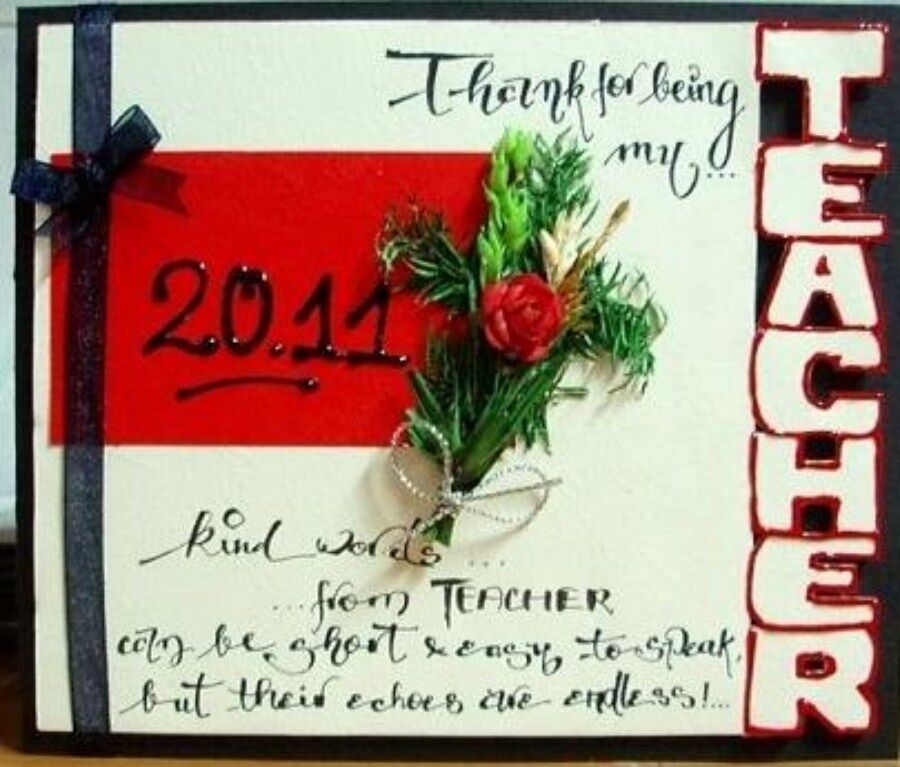 Thank for being
my...
TEACHER
20.11
kind words ...
...from TEACHER
can be short & easy to speak,
but their echoes are endless!...